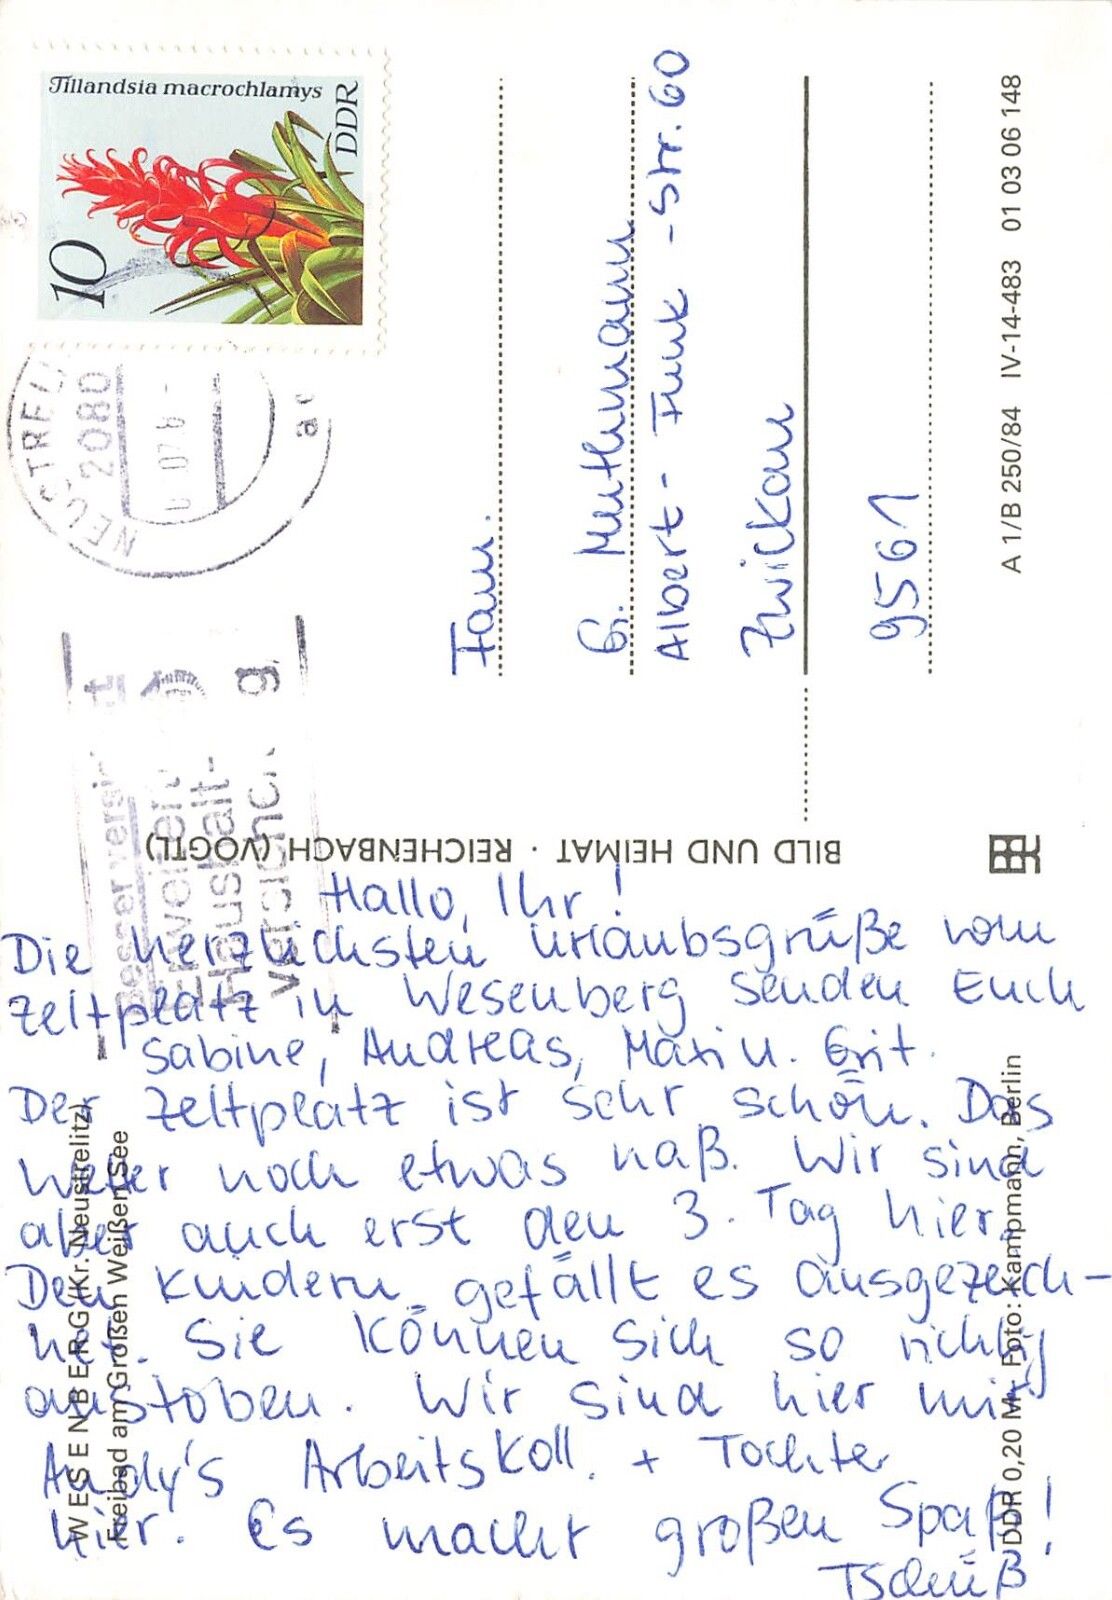 Hallo, Ihr!
Die herzlichsten Urlaubsgrüße vom
Zeltplatz in Wesenberg senden Euch
Sabine, Andreas, Maxi u. Grit.
Der Zeltplatz ist sehr schön. Das
Wetter noch etwas naß. Wir sind
aber auch erst den 3. Tag hier.
Den Kindern gefällt es ausgezeich-
net. Sie können sich so richtig
austoben. Wir sind hier mit
Andy's Arbeitskoll. + Tochter
hier. Es macht großen Spaß!
Tschüß
Fam.
G. Muthmann
Albert-Funk-Str. 60
Zwickau
9561
Tillandsia macrochlamys
DDR
10
2080
Haushalt-
BILD UND HEIMAT · REICHENBACH (VOGTL)
WESENBERG (Kr. Neustrelitz)
Freibad am Großen Weißen See
DDR 0,20 M Foto: Kampmann, Berlin
A 1/B 250/84 IV-14-483 01 03 06 148